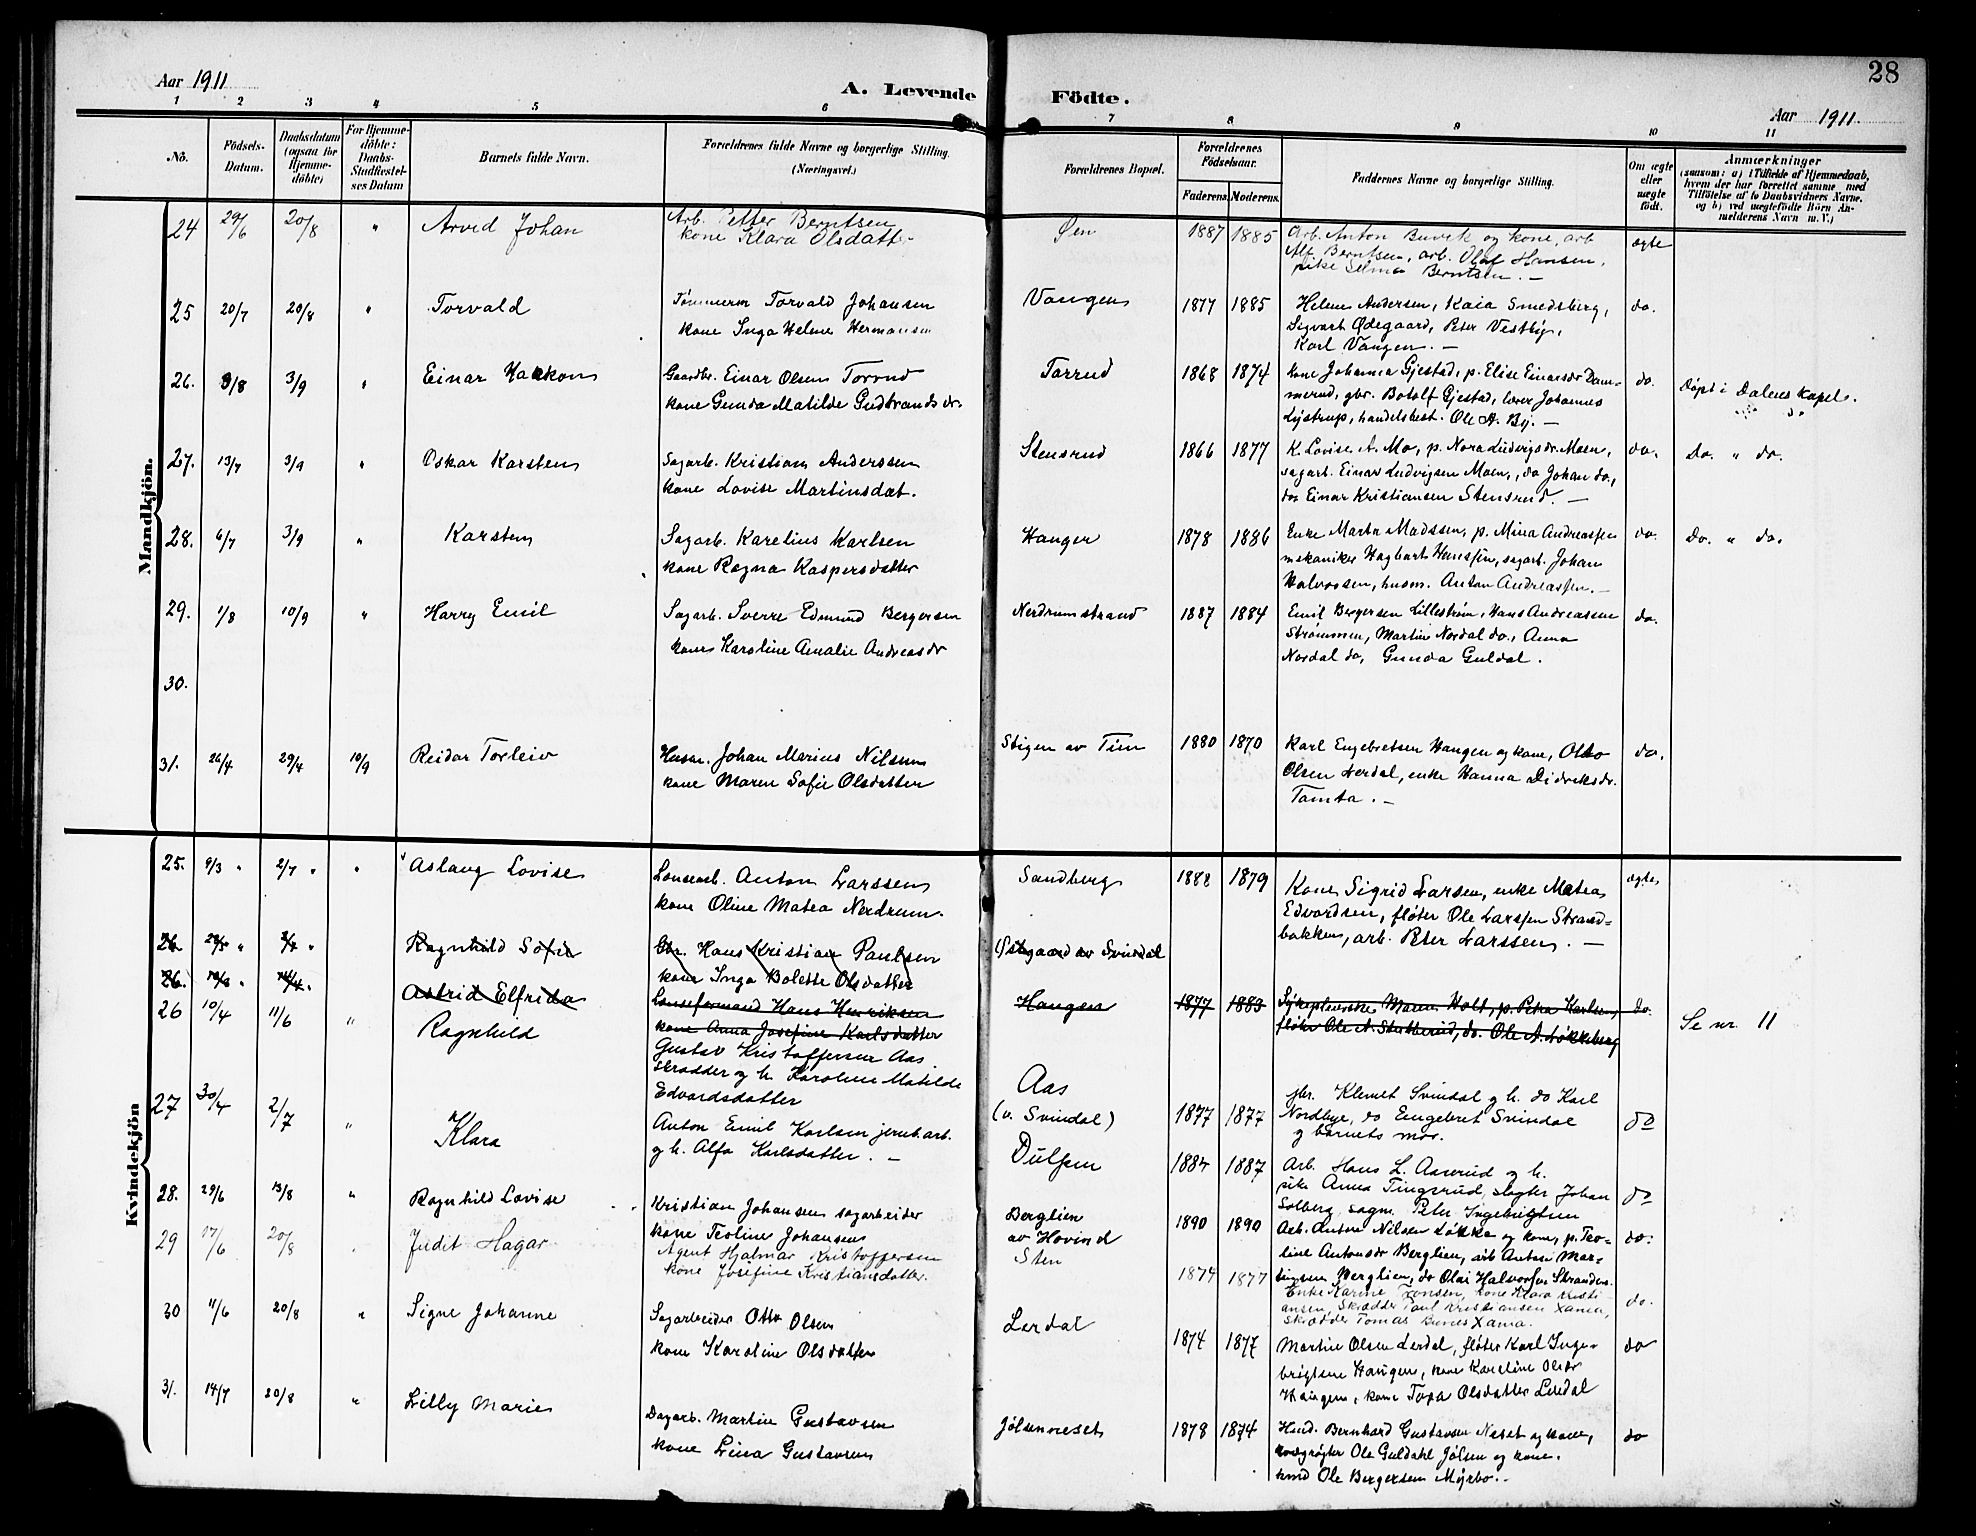 28
Aar 1911
A. Levende Födte.
Aar 1911
1 2 3 4 5 6 7 8 9 10 11
No.
Födsels-
Datum.
Daabsdatum
(ogsaa for
Hjemme-
döbte)
For Hjemme-
döbte:
Daabs-
Stadfæstel-
ses Datum
Barnets fulde Navn.
Forældrenes fulde Navne og borgerlige Stilling.
(Næringsvei.)
Forældrenes Bopæl.
Forældrenes
Födselsaar.
Faderens. Moderens.
Faddernes Navne og borgerlige Stilling.
Om ægte
eller
uægte
födt.
Anmærkninger
(saasom: a) i Tilfælde af Hjemmedaab,
hvem der har forrettet samme med
Tilföielse af to Daabsvidners Navne.
og b) ved uægtefödte Börn An-
melderens Navn m. V.)
Mandkjön.
24 29/6 20/8 " Arvid Johan
Arb. Petter Berntsen
kone Klara Olsdatter
Øen 1887 1885
Arb. Anton Buvik og kone, arb.
Alf. Berntsen, arb. Olaf Hansen,
pike Selma Berntsen. —
ægte
25 20/7 20/8 " Torvald
Tømmerm Torvald Johansen
kone Inga Helene Hermansen
Vangen 1877 1885
Helene Andersen, Kaia Smedsberg,
Sigvart Ødegaard, Peter Vestby,
Karl Vangen. —
do.
26. 9/8 3/9 " Einar Haakon
Gaardbr. Einar Olsen Torrud
kone Gunda Matilde Gudbrandsdr.
Torrud 1868 1874
kone Johanna Gjestad, p. Elise Einarsdr Dam-
merud, gbr. Botolf Gjestad, lærer Johannes
Lystrup, handelsbest. Ole A. By. —
do.
Döpt i Dalens kapel.
27. 13/7 3/9 " Oskar Karsten
Sagarb. Kristian Anderssen
kone Lovise Martinsdat.
Stensrud 1866 1877
K. Lovise A. Mo, p. Nora Ludvigsdr. Moen,
sagarb. Einar Ludvigsen Moen, do Johan do.,
do Einar Kristiansen Stensrud. —
do.
Do. " do.
28. 6/7 3/9 " Karsten
Sagarb. Karelius Karlsen
kone Ragna Kaspersdatter
Hanger 1878 1886
Enke Marta Madssen, p. Mina Andreassen
mekaniker Hagbart Hanssen, sagarb. Johan
Halvorsen, husm. Anton Andreassen. —
do.
Do. " do.
29. 1/8 10/9 " Harry Emil
Sagarb. Sverre Edmund Bergersen
kone Karoline Amalie Andreasdr
Nerdrumstrand 1887 1884
Emil Bergersen Lillestrøm, Hans Andreassen
Strømmen, Martin Nordal do., Anna
Nordal do, Gunda Guldal.
do.
30.
31. 26/4 29/4 10/9 Reidar Torleiv
Husm. Johan Marius Nilsen
kone Maren Sofie Olsdatter
Stigen av Tien 1880 1870
Karl Engebretsen Hangen og kone, Otto
Olsen Lerdal, enke Hanna Didriksdr.
Tomta. —
do.
Kvindekjön
25. 9/3 " 2/7 " " Aslaug Lovise
Lensearb. Anton Larssen
kone Oline Matea Nerdrum.
Sandberg 1888 1879
Kone Sigrid Larsen, enke Matea
Edvardsen, fløter Ole Larssen Strand-
bakken, arb. Peter Larssen. —
ægte
26. Ragnhild Sofie
Gbr. Hans Kristian Paulsen
kone Inga Bolette Olsdatter
Østgaard av Svindal
26. Astrid Elfrida
Lenseformand Hans Henriksen
kone Anna Josefine Karlsdatter
Haugen 1877 1883
Sykepleierske Maren Holt, p. Petra Karlsen,
fløter Ole A. Stutterud, do. Ole A. Løkkeberg
do.
Se nr. 11
26 10/4 11/6 " Ragnhild
Gustav Kristoffersen Aas
skrædder og h. Karoline Matilde
Edvardsdatter
Aas
(v. Svindal) 1877 1877
gbr. Klemet Svindal og h. do Karl
Nordbye, do Engebret Svindal
og barnets mor.
do
27 30/4 2/7 " Klara
Anton Emil Karlsen jernb.arb.
og h. Alfa Karlsdatter. —
Dulpen 1884 1887
Arb. Hans L. Aaserud og h.
pike Anna Tingsrud, slagter Johan
Solberg, sagm. Peter Ingebrigtsen
do
28. 29/6 13/8 " Ragnhild Lovise
Kristian Johansen sagarbeider
kone Teoline Johansen
Berglien
av Hovind 1890 1890
Arb. Anton Nilsen Løkke og kone, p. Teo-
line Antonsdr Berglien, arb Anton Mar-
tinsen Berglien, do Olai Halvorsen Stranden.
do.
29 17/6 20/8 " Judit Hagar
Agent Hjalmar Kristoffersen
kone Josefine Kristiansdatter.
Sten 1874 1877
Enke Karine Tonsen, kone Klara Kristi-
ansen, Skrædder Paul Kristiansen Xania,
skrædder Tomas Xania.
do.
30 11/6 20/8 " Signe Johanne
Sagarbeider Otto Olsen
kone Karoline Olsdatter
Lerdal 1874 1877
Martin Olsen Lerdal, fløter Karl Inge-
brigtsen Haugen, kone Karoline Olsdr
Haugen, kone Tora Olsdatter Lerdal
do
31. 14/7 20/8 " Lilly Marie
Dagarb. Martin Gustavsen
kone Lina Gustavsen
Jölsenneset 1878 1874
Husd. Bernhard Gustavsen Neset og kone,
Ole Guldahl Jölsen og kone.
husd Ole Bergersen Myrbo. -
do